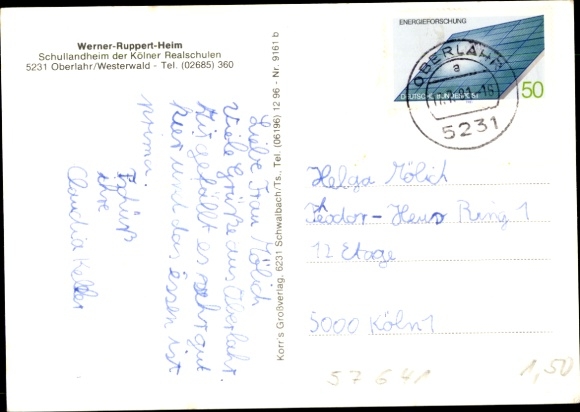 Werner-Ruppert-Heim
Schullandheim der Kölner Realschulen
5231 Oberlahr/Westerwald - Tel. (02685) 360
Liebe Frau Mölich
Viele Grüße aus Oberlahr.
Mir gefällt es sehr gut
hier und das essen ist
prima.
Ihre
Claudia Keller
Korr's Großverlag, 6231 Schwalbach/Ts., Tel. (06196) 12 96 - Nr. 9161 b
ENERGIEFORSCHUNG
DEUTSCHE BUNDESPOST
50
OBERLAHR
a
5231
Helga Mölich
Teodor-Heus Ring 1
12 Etage
5000 Köln 1
57641
1,50